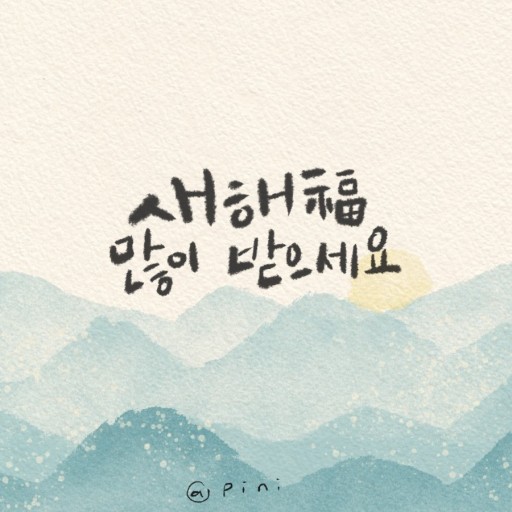 새해福
많이 받으세요
@pini